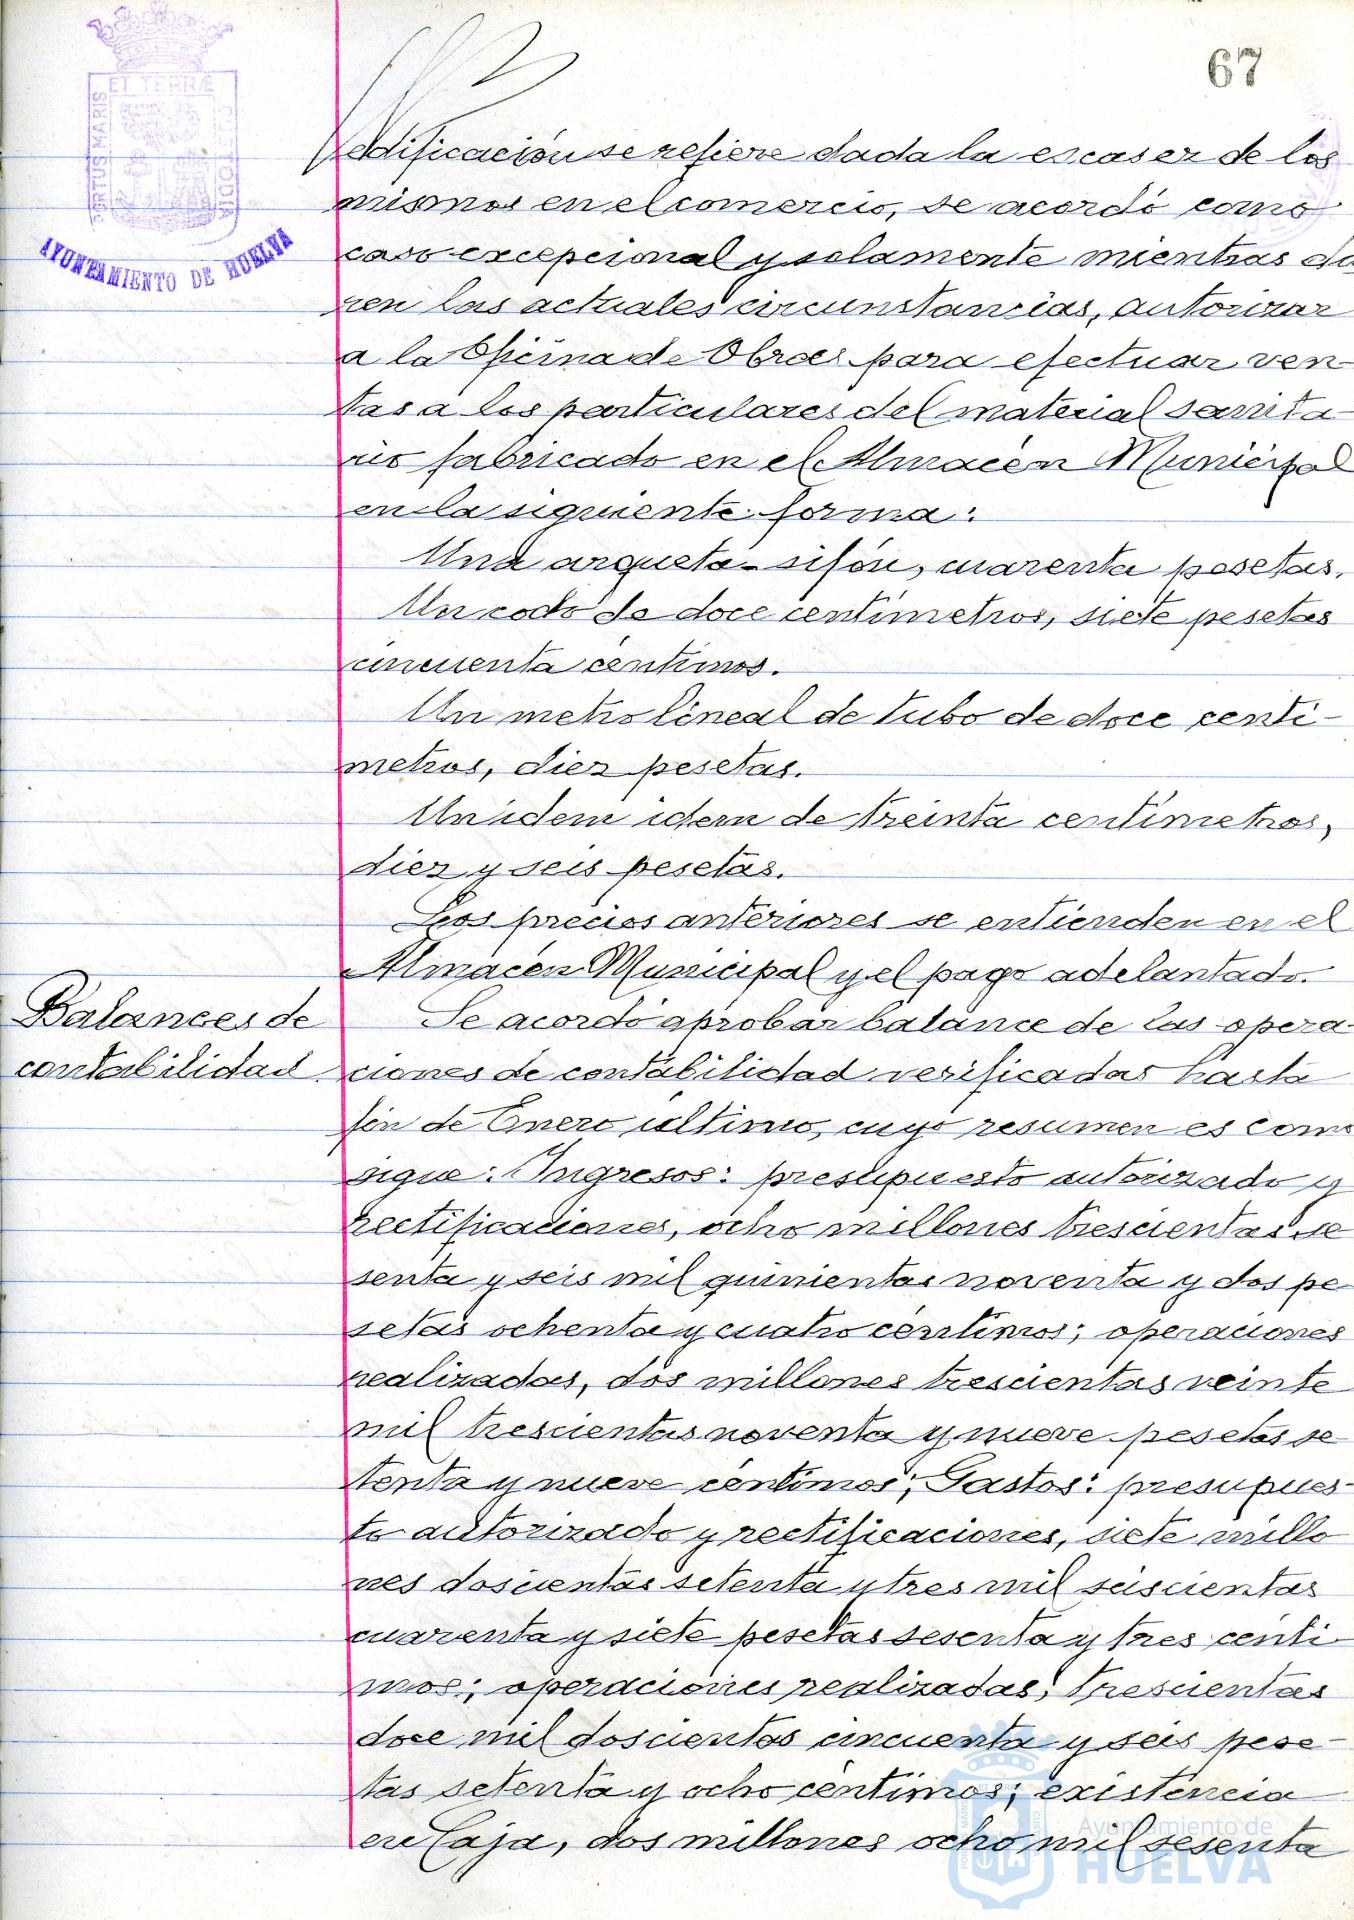 67
PORTUS MARIS ET TERRÆ CUSTODIA
AYUNTAMIENTO DE HUELVA
edificación se refiere dada la escasez de los
mismos en el comercio, se acordó como
caso excepcional y solamente mientras du
ren las actuales circunstancias, autorizar
a la Oficina de Obras para efectuar ven-
tas a los particulares del material sanita-
rio fabricado en el Almacén Municipal
en la siguiente forma:
Una arqueta-sifón, cuarenta pesetas.
Un codo de doce centímetros, siete pesetas
cincuenta céntimos.
Un metro lineal de tubo de doce centí-
metros, diez pesetas.
Un idem idem de treinta centímetros,
diez y seis pesetas.
Los precios anteriores se entienden en el
Almacén Municipal y el pago adelantado.
Balances de
contabilidad.
Se acordó aprobar balance de las opera-
ciones de contabilidad verificadas hasta
fin de Enero último, cuyo resumen es como
sigue: Ingresos: presupuesto autorizado y
rectificaciones, ocho millones trescientas se
senta y seis mil quinientas noventa y dos pe-
setas ochenta y cuatro céntimos; operaciones
realizadas, dos millones trescientas veinte
mil trescientas noventa y nueve pesetas se-
tenta y nueve céntimos; Gastos: presupues-
to autorizado y rectificaciones, siete millo
nes doscientas setenta y tres mil seiscientas
cuarenta y siete pesetas sesenta y tres cénti-
mos; operaciones realizadas, trescientas
doce mil doscientas cincuenta y seis pese-
tas setenta y ocho céntimos; existencia
en Caja, dos millones ocho mil sesenta
Ayuntamiento de
HUELVA